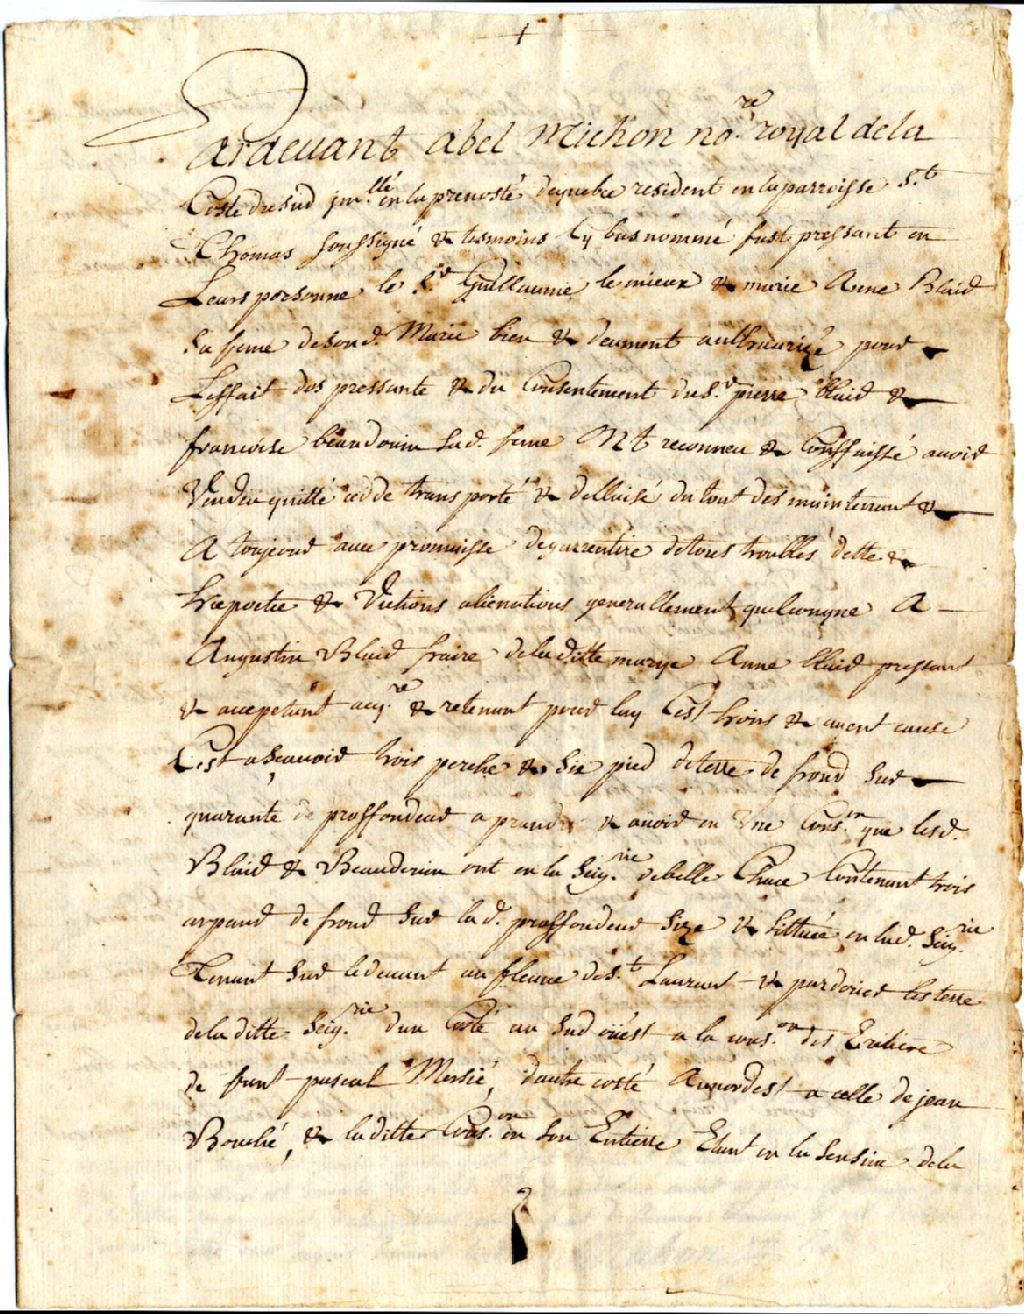 Pardevant abel Michon no.re royal dela
Coste du sud jm.llé en la prevosté dequebec resident en la parroisse S.t
Thomas soussigné & tesmoins Cy bas nommé fust pressant en
Leurs personne le S.r Guillaume lemieux & marie Anne Blaid
sa feme deson d. Marie bien & deument authaurizé pour
Leffait des pressante & du Consentement du S.r pierre blaid &
francoise beaudouin sad. feme Ont reconneu & Conffaissé avoir
Vendeu quitté cedde transporté & dellaisé du tout des maintenant &
A toujour avec promaisse degarrentire detous troubles dette &
hiepoctec & Victions alienations generallement quelconque A
Augustin Blaid fraire dela ditte marye Anne blaid pressant
& accepetant acq.re & retenant pour luy Ces hoirs & aient cause
C'est a scavoir trois perche & six pied deterre de frond sur
quarante de proffondeur a prandre & avoir en Une Cons.on que lesd.
Blaid & Beaudouin ont en la Seig.rie debelle Chace Contenant trois
arpand de frond sur la d. proffondeur size & sittuée en lad. Seig.rie
Tenant sur ledevant au fleuve des.t Laurant & par derier les terre
dela ditte Seig.rie d'un Coté au sud ouest a la cons.on des Eritiere
de funt pascal Mersié, d'autre costé Aunordest a celle de jean
Bouché, & la ditte Cons.on en son Entierre Etant en la sensive dela